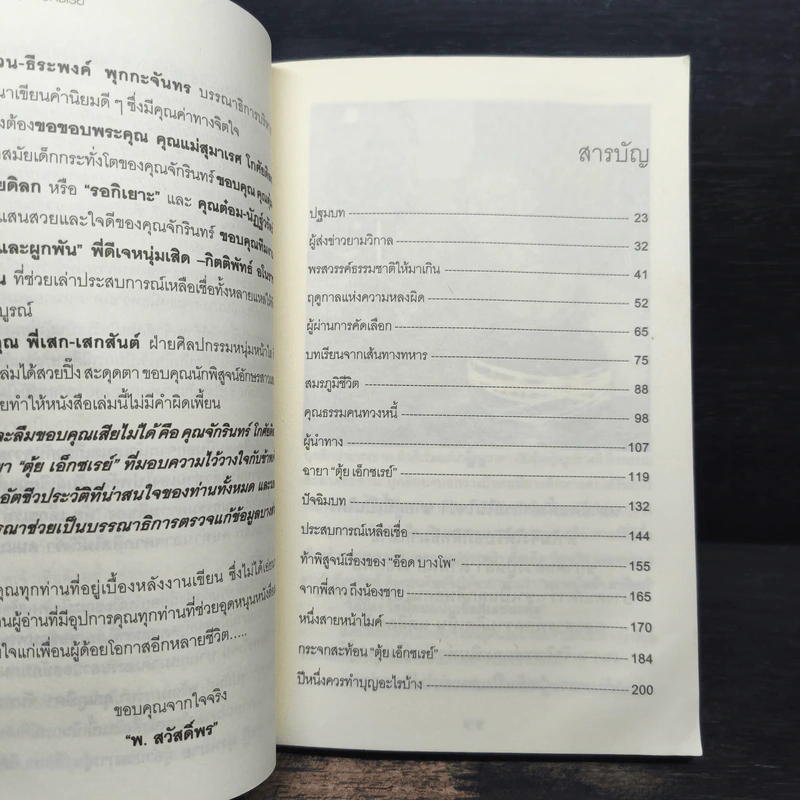 วน-ธีระพงค์ พุกกะจันทร บรรณาธิการบริหาร
นาเขียนคำนิยมดี ๆ ซึ่งมีคุณค่าทางจิตใจ
งต้องขอขอบพระคุณ คุณแม่สุมาเรศ
สมัยเด็กกระทั่งโตของคุณจักรินทร์ ขอบคุณ
ยดิลก หรือ “รอกิเยาะ” และ คุณต๋อม
แสนสวยและใจดีของคุณจักรินทร์ ขอบคุณทีมงาน
และผูกพัน” พี่ดีเจหนุ่มเสิด –กิตติพัทธ์
น ที่ช่วยเล่าประสบการณ์เหลือเชื่อทั้งหลาย
บูรณ์
คุณ พี่เสก-เสกสันต์ ฝ่ายศิลปกรรมหนุ่มหน้า
ล่มได้สวยปิ๊ง สะดุดตา ขอบคุณนักพิสูจน์อักษร
ยทำให้หนังสือเล่มนี้ไม่มีคำผิดเพี้ยน
ละลืมขอบคุณเสียไม่ได้ คือ คุณจักรินทร์
ยา “ตุ้ย เอ็กซเรย์” ที่มอบความไว้วางใจกับข้าพเจ้า
อัตชีวประวัติที่น่าสนใจของท่านทั้งหมด
รณาช่วยเป็นบรรณาธิการตรวจแก้ข้อมูล
คุณทุกท่านที่อยู่เบื้องหลังงานเขียน ซึ่งไม่ได้
นผู้อ่านที่มีอุปการคุณทุกท่านที่ช่วยอุดหนุนหนังสือ
ใจแก่เพื่อนผู้ด้อยโอกาสอีกหลายชีวิต.....
ขอบคุณจากใจจริง
“พ. สวัสดิ์พร”
สารบัญ
ปฐมบท 23
ผู้ส่งข่าวยามวิกาล 32
พรสวรรค์ธรรมชาติให้มาเกิน 41
ฤดูกาลแห่งความหลงผิด 52
ผู้ผ่านการคัดเลือก 65
บทเรียนจากเส้นทางทหาร 75
สมรภูมิชีวิต 88
คุณธรรมคนทวงหนี้ 98
ผู้นำทาง 107
ฉายา “ตุ้ย เอ็กซเรย์” 119
ปัจฉิมบท 132
ประสบการณ์เหลือเชื่อ 144
ท้าพิสูจน์เรื่องของ “อ๊อด บางโพ” 155
จากพี่สาว ถึงน้องชาย 165
หนึ่งสายหน้าไมค์ 170
กระจกสะท้อน “ตุ้ย เอ็กซเรย์” 184
ปีหนึ่งควรทำบุญอะไรบ้าง 200